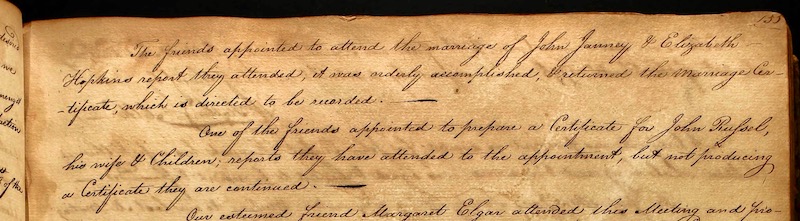 155
The friends appointed to attend the marriage of John Janney & Elizabeth
Hopkins report they attended, it was orderly accomplished, & returned the marriage Cer-
-tificate, which is directed to be recorded.
One of the friends appointed to prepare a Certificate for John Russel,
his wife & Children; reports they have attended to the appointment, but not producing
a Certificate they are continued.
Our esteemed friend Margaret Elgar attended this Meeting and pro-